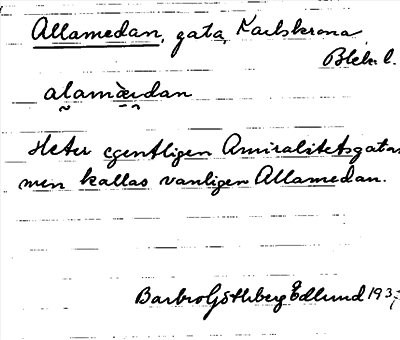 Allamedan, gata, Karlskrona,
Blek. l.
alamæ̀ɪdan
Heter egentligen Amiralitetsgatan
men kallas vanligen Allamedan.
Barbro Götlberg Edlund 193